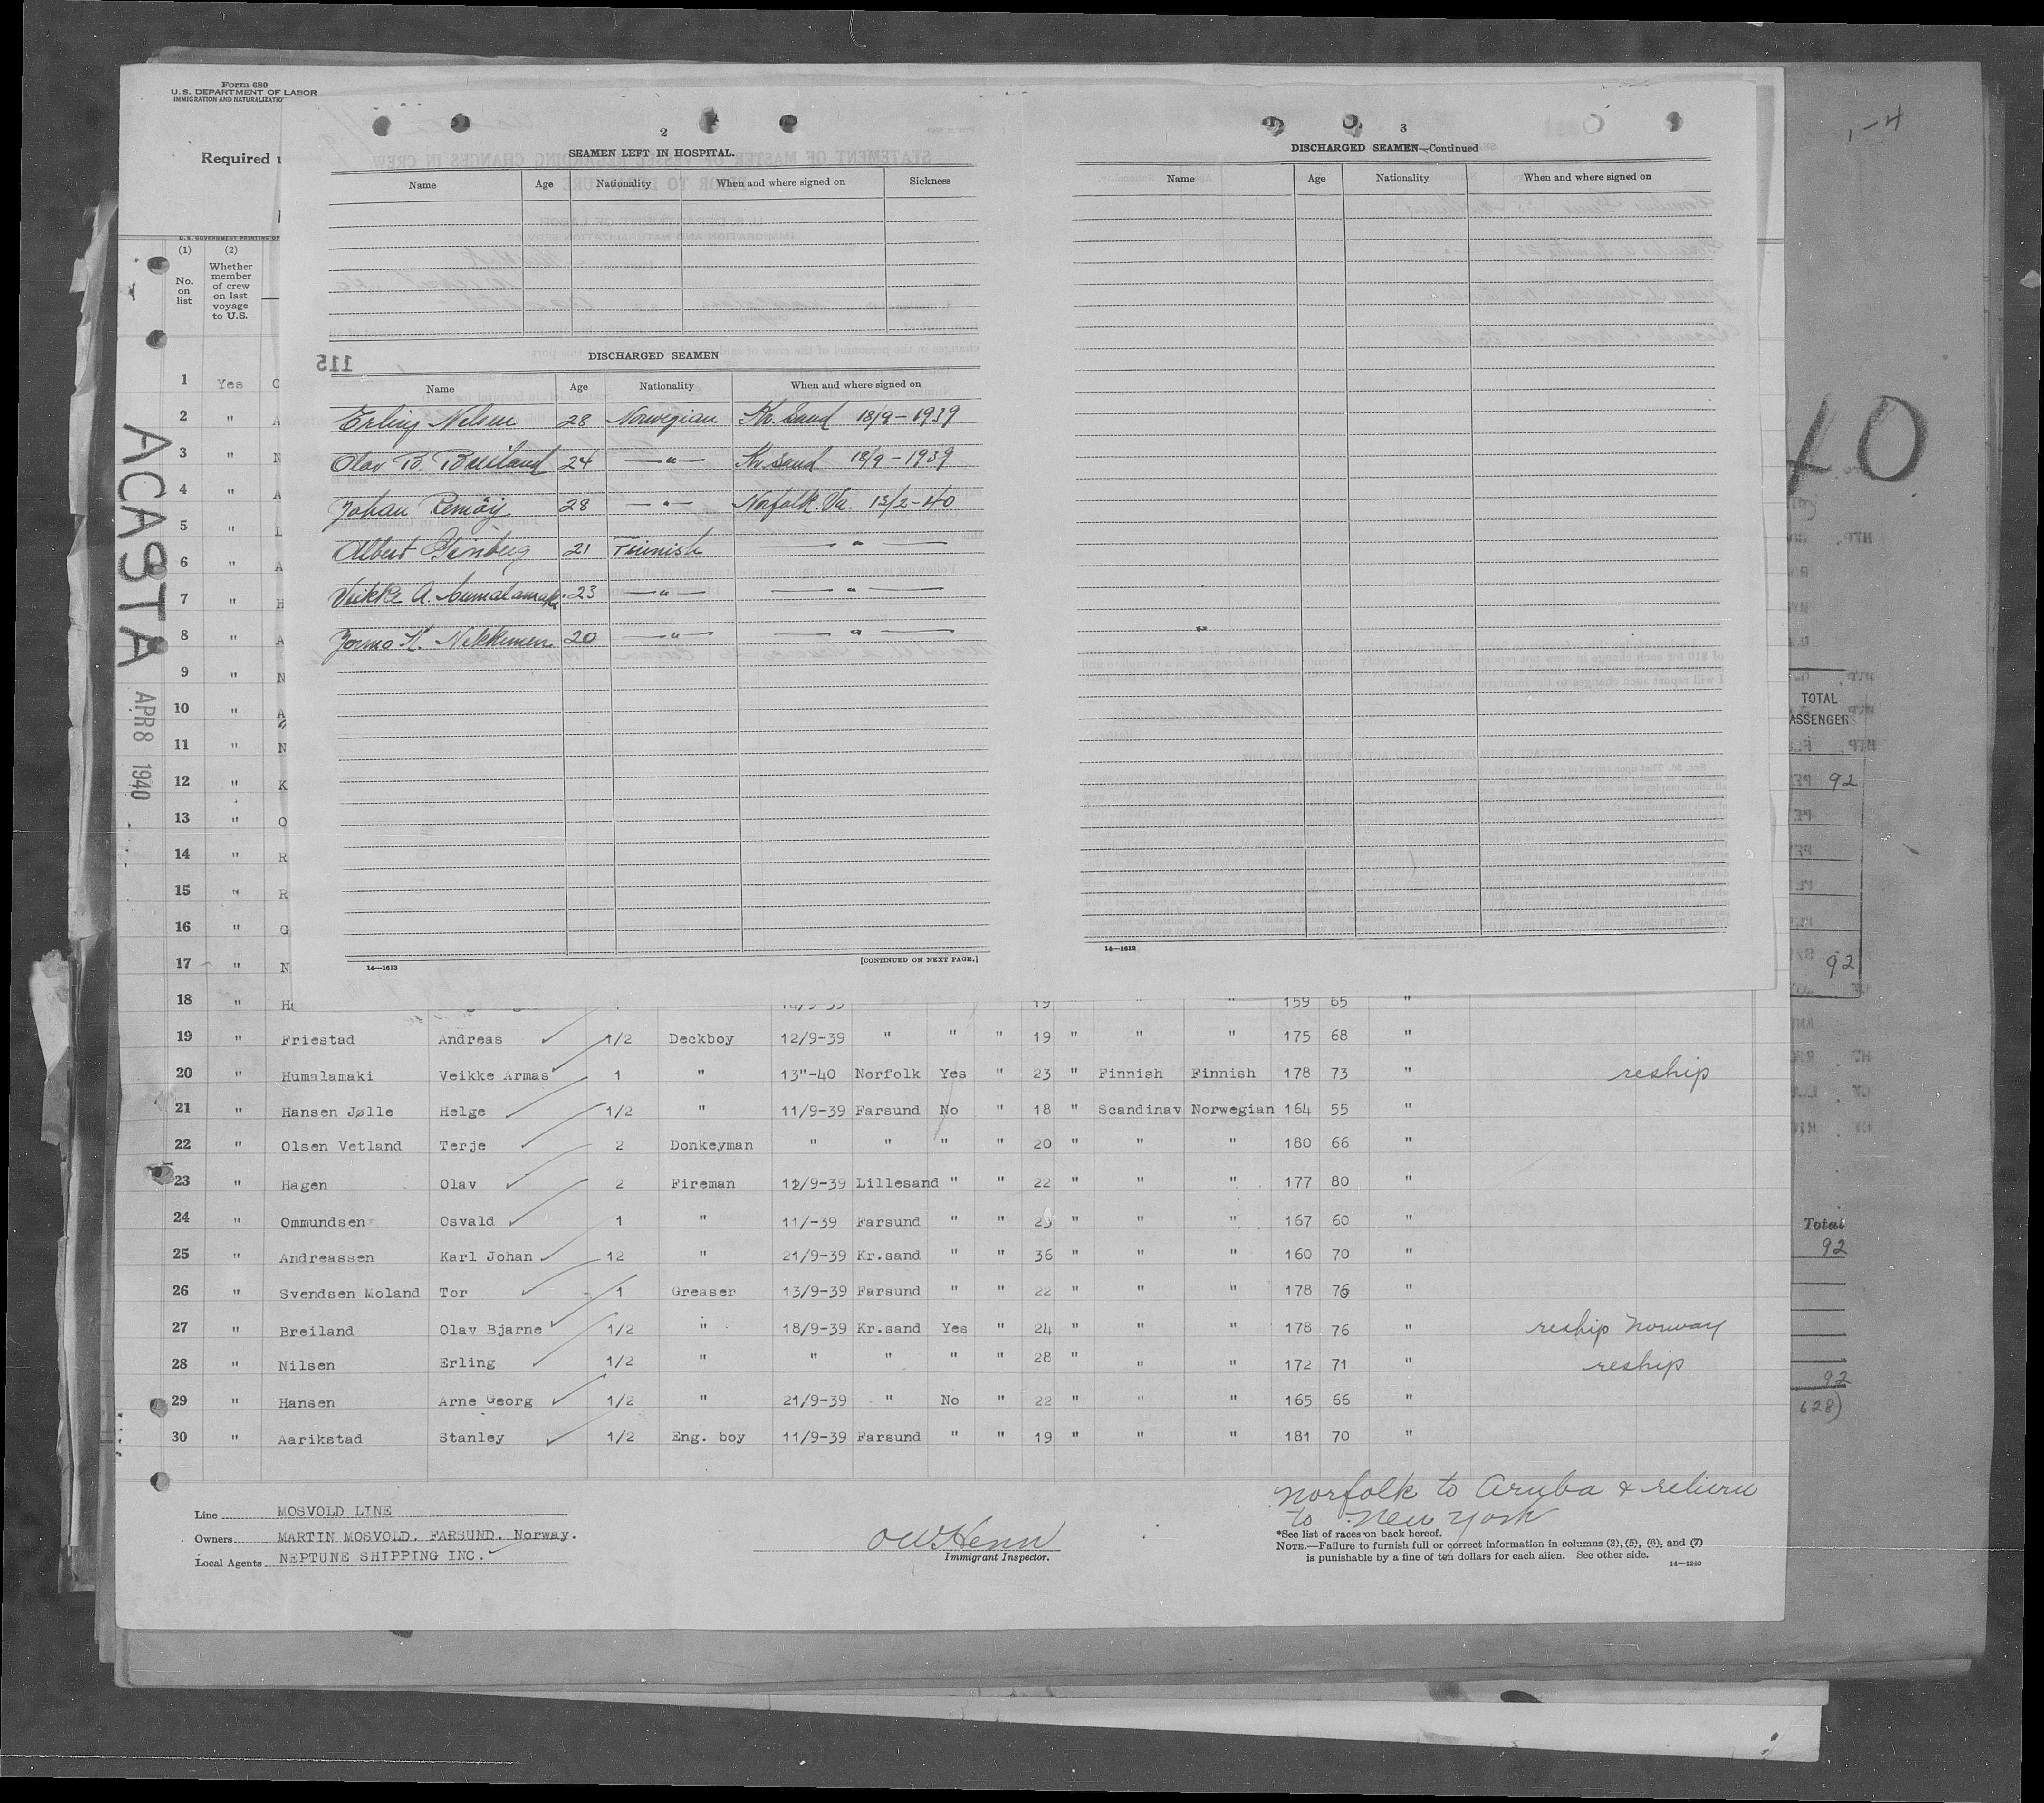 Form 680
U. S. DEPARTMENT OF LABOR
IMMIGRATION AND NATURALIZATIO
Required u
U. S. GOVERNMENT PRINTING OF
(1) (2)
No. on list
Whether member of crew on last voyage to U.S.
ACASTA
APR 8 1940
2
SEAMEN LEFT IN HOSPITAL.
Name Age Nationality When and where signed on Sickness
115
DISCHARGED SEAMEN
Name Age Nationality When and where signed on
Erling Nelsen 28 Norwegian Kr. Sand 18/9-1939
Olav B. Breiland 24 —"— Kr sand 18/9-1939
Johan Remöy 28 —"— Norfolk. Va. 13/2-40
Albert 21 —"—
Veikke A. Humalamaki 23 —"— —"—
Jormo K. Nikkinen 20 —"— —"—
14—1613
[CONTINUED ON NEXT PAGE.]
3
DISCHARGED SEAMEN—Continued
Name Age Nationality When and where signed on
14—1613
1-4
40
TOTAL
ASSENGER
92
92
Total
92
92
628)
1 Yes C
2 " A
3 " N
4 " A
5 " L
6 " A
7 " H
8 " A
9 " N
10 " A
11 " N
12 " K
13 " O
14 " R
15 " R
16 " G
17 " N
18 " H 14/9-39 19 " " " 159 65 "
19 " Friestad Andreas 1/2 Deckboy 12/9-39 " " " 19 " " " 175 68 "
20 " Humalamaki Veikke Armas 1 " 13"-40 Norfolk Yes " 23 " Finnish Finnish 178 73 " reship
21 " Hansen Jølle Helge 1/2 " 11/9-39 Farsund No " 18 " Scandinav Norwegian 164 55 "
22 " Olsen Vetland Terje 2 Donkeyman " " " " 20 " " " 180 66 "
23 " Hagen Olav 2 Fireman 12/9-39 Lillesand " " 22 " " " 177 80 "
24 " Ommundsen Osvald 1 " 11/-39 Farsund " " 23 " " " 167 60 "
25 " Andreassen Karl Johan 12 " 21/9-39 Kr.sand " " 36 " " " 160 70 "
26 " Svendsen Moland Tor 1 Greaser 13/9-39 Farsund " " 22 " " " 178 76 "
27 " Breiland Olav Bjarne 1/2 " 18/9-39 Kr.sand Yes " 24 " " " 178 76 " reship Norway
28 " Nilsen Erling 1/2 " " " " " 28 " " " 172 71 " reship
29 " Hansen Arne Georg 1/2 " 21/9-39 " No " 22 " " " 165 66 "
30 " Aarikstad Stanley 1/2 Eng. boy 11/9-39 Farsund " " 19 " " " 181 70 "
Norfolk to Aruba & return
to New York
Line MOSVOLD LINE
Owners MARTIN MOSVOLD. FARSUND. Norway.
Local Agents NEPTUNE SHIPPING INC.
OWHenn
Immigrant Inspector.
*See list of races on back hereof.
NOTE.—Failure to furnish full or correct information in columns (3), (5), (6), and (7)
is punishable by a fine of ten dollars for each alien. See other side.
14—1240